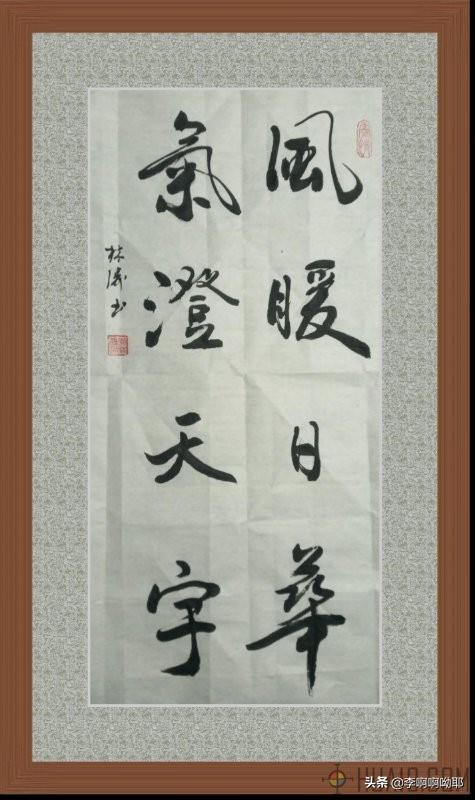 風暖日華
氣澄天宇
林濤书
头条 @李啊啊呦耶